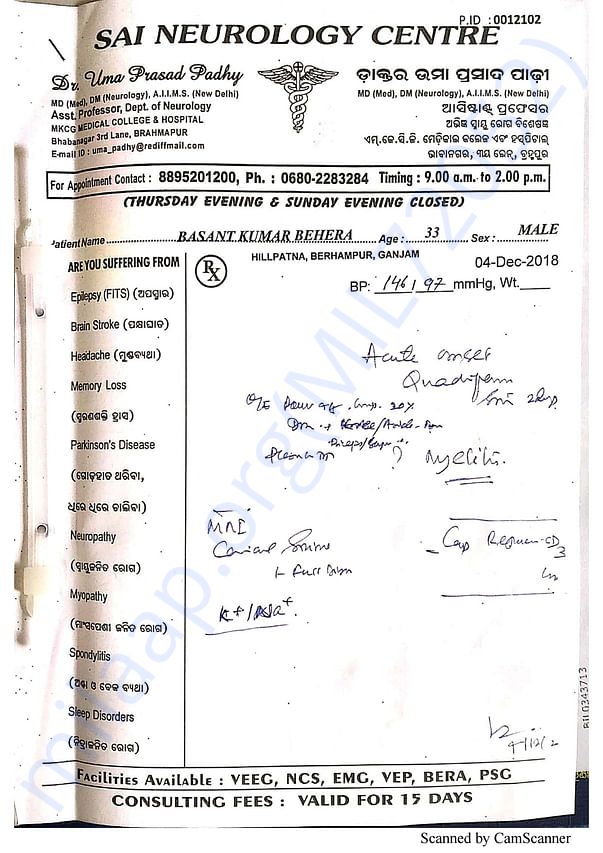 P.ID :0012102
SAI NEUROLOGY CENTRE
Dr. Uma Prasad Padhy
MD (Med), DM (Neurology), A.I.I.M.S. (New Delhi)
Asst. Professor, Dept. of Neurology
MKCG MEDICAL COLLEGE & HOSPITAL
Bhabanagar 3rd Lane, BRAHMAPUR
E-mail ID : uma_padhy@rediffmail.com
ଡାକ୍ତର ଉମା ପ୍ରସାଦ ପାଢ଼ୀ
MD (Med), DM (Neurology), A.I.I.M.S. (New Delhi)
ଆସିଷ୍ଟାଣ୍ଟ ପ୍ରଫେସର
ଅଭିଜ୍ଞ ସ୍ନାୟୁ ରୋଗ ବିଶେଷଜ୍ଞ
ଏମ୍.କେ.ସି.ଜି. ମେଡ଼ିକାଲ କଲେଜ ଏବଂ ହସ୍ପିଟାଲ୍
ଭାବାନଗର, ୩ୟ ଲେନ୍, ବ୍ରହ୍ମପୁର
For Appointment Contact : 8895201200, Ph. : 0680-2283284 Timing : 9.00 a.m. to 2.00 p.m.
(THURSDAY EVENING & SUNDAY EVENING CLOSED)
Patient Name BASANT KUMAR BEHERA Age : 33 Sex : MALE
HILLPATNA, BERHAMPUR, GANJAM
04-Dec-2018
BP: 146/97 mmHg, Wt.
ARE YOU SUFFERING FROM
RX
Epilepsy (FITS) (ଅପସ୍ମାର)
Brain Stroke (ପକ୍ଷାଘାତ)
Headache (ମୁଣ୍ଡବ୍ୟଥା)
Memory Loss
(ସ୍ମରଣଶକ୍ତି ହ୍ରାସ)
Parkinson's Disease
(ଗୋଡ଼ହାତ ଥରିବା,
ଧିରେ ଧିରେ ଚାଲିବା)
Neuropathy
(ସ୍ନାୟୁଜନିତ ରୋଗ)
Myopathy
(ମାଂସପେଶୀ ଜନିତ ରୋଗ)
Spondylitis
(ଅଣ୍ଟା ଓ ବେକ ବ୍ୟଥା)
Sleep Disorders
(ନିଦ୍ରାଜନିତ ରୋଗ)
Acute onset
O/E Power
Myelitis.
MRI
Cap
K+/Na+
Facilities Available : VEEG, NCS, EMG, VEP, BERA, PSG
CONSULTING FEES : VALID FOR 15 DAYS
BIL0343713
milaap.org(MIL/2022)
Scanned by CamScanner